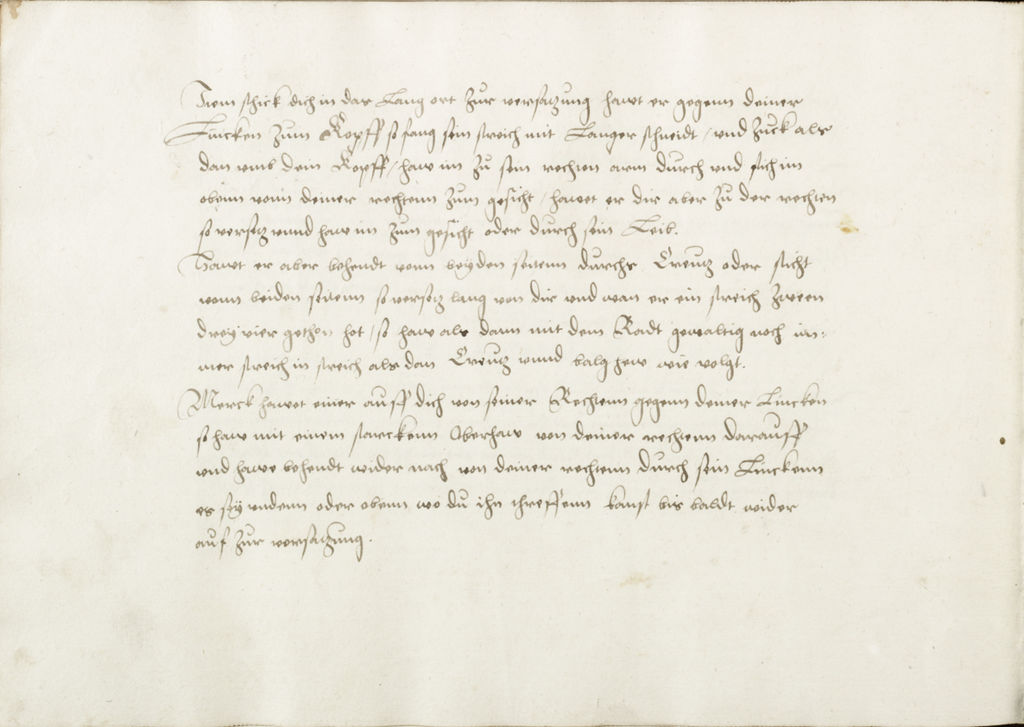 Item schick dich in das Lang ort zur versatzung hawt er gegenn deiner
Lincken zum Kopff so fang sein streich mit Langer schneidt / vnd zuck als
dan vmb dein Kopff / haw im zu sein rechten arm durch vnd stich im
obenn vonn deiner rechtenn zum gesicht / hawet er dir aber zu der rechten
so versetz vnnd haw im zum gesicht oder durch sein Leib.
Hawt er aber behendt vonn beyden seitenn durchs Creutz oder sticht
vonn beiden seitenn so versetz lang von dir vnd wan er ein streich zween
drey vier gethon hot / so haw als dann mit dem Radt gewaltig noch im:
mer streich in streich als dan Creutz vnnd balg hew wie volgt.
Merck hawet einer auff dich von seiner Rechtenn gegenn deiner Lincken
so haw mit einem starckenn Oberhaw von deiner rechtenn darauff
vnd hawe behendt wider nach von deiner rechtenn durch sein Linckenn
es sey vndenn oder obenn wo du ihn threffenn kanst bis baldt wider
auf zur versatzung.